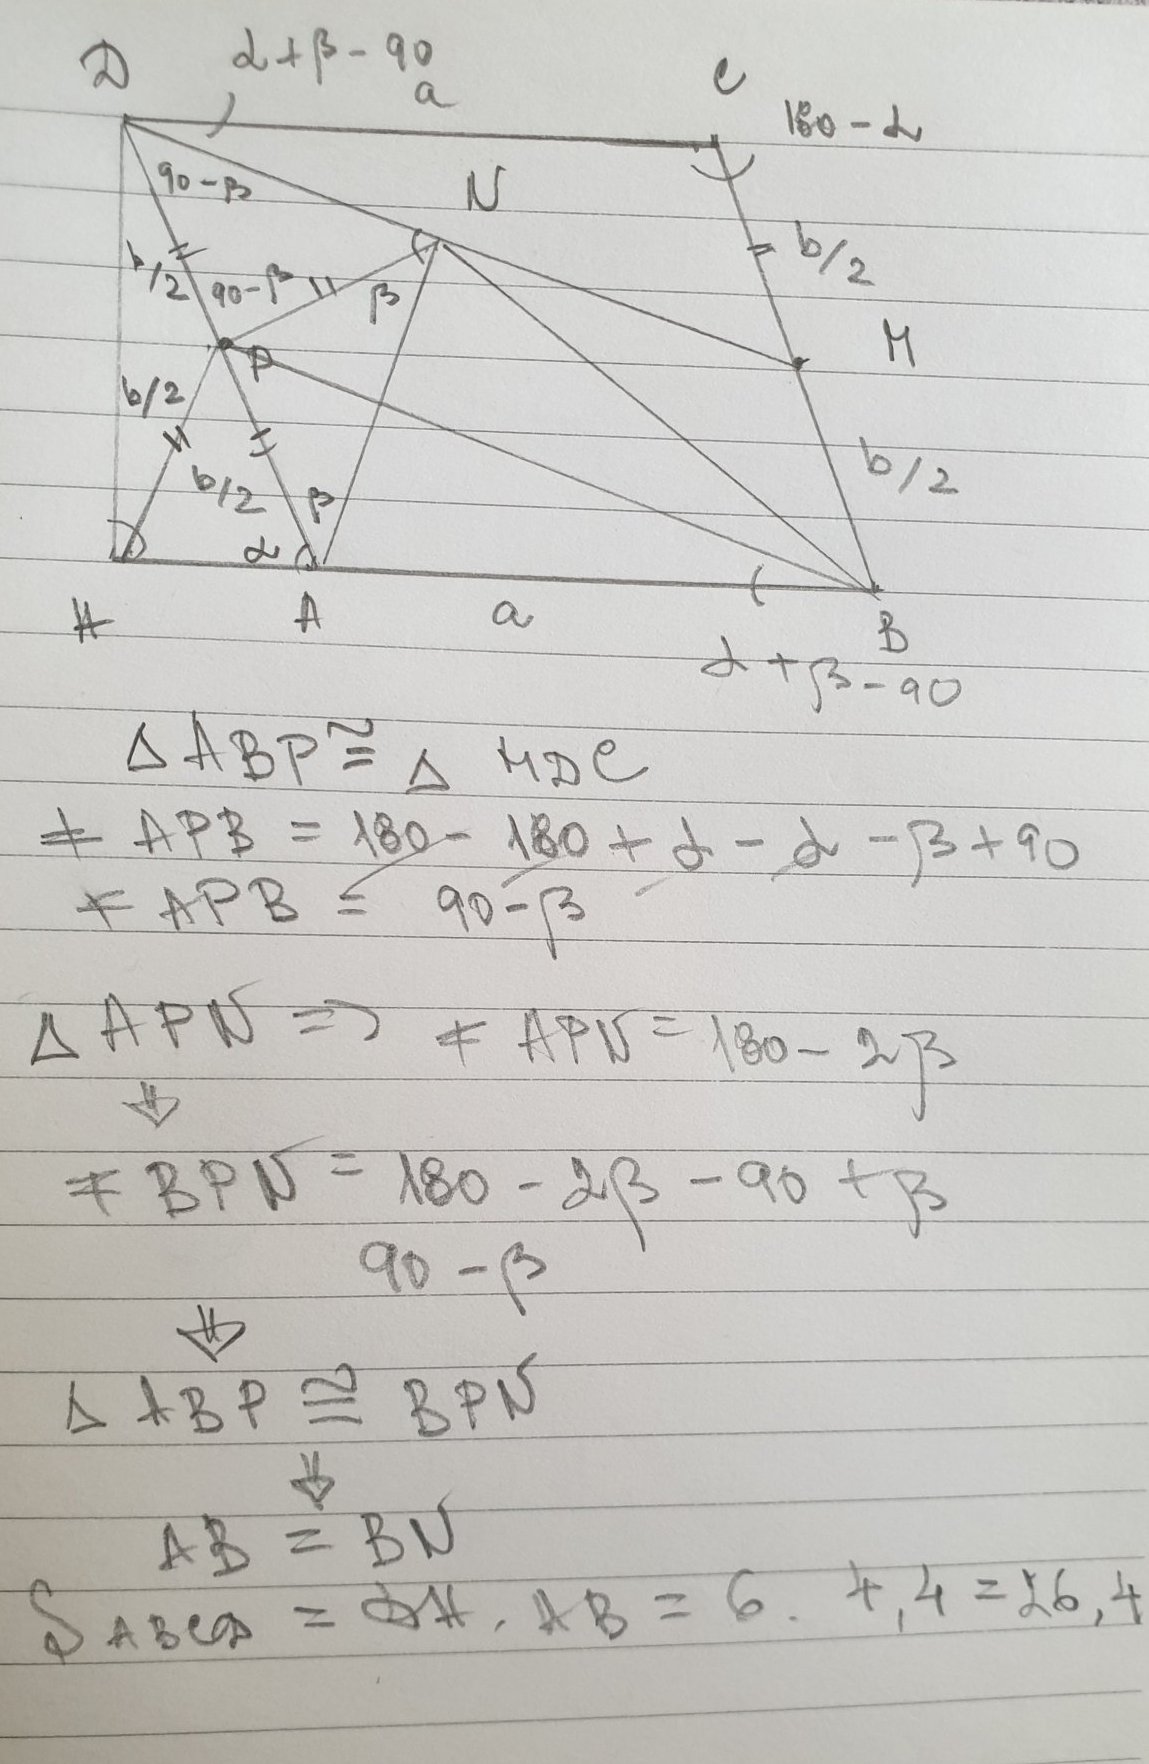 D α+β-90 a C 180-α
90-β N
b/2 90-β β b/2
P M
b/2 b/2 β b/2
α
H A a B
α+β-90
Δ ABP ≅ Δ MDC
∢ APB = 180 - 180 + α - α - β + 90
∢ APB = 90-β
Δ APN => ∢ APN = 180 - 2β
⇓
∢ BPN = 180 - 2β - 90 + β
90 - β
⇓
Δ ABP ≅ BPN
⇓
AB = BN
S ABCD = DH . AB = 6 . 4,4 = 26,4